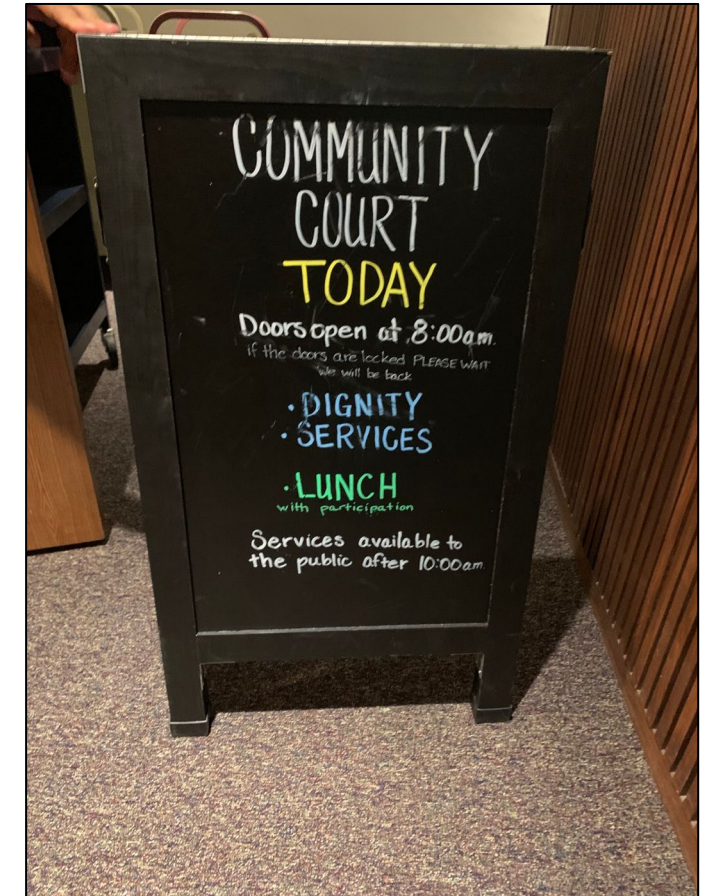 COMMUNITY
COURT
TODAY
Doors open at 8:00am.
if the doors are locked PLEASE WAIT
we will be back
• DIGNITY
• SERVICES
• LUNCH
with participation
Services available to
the public after 10:00am.